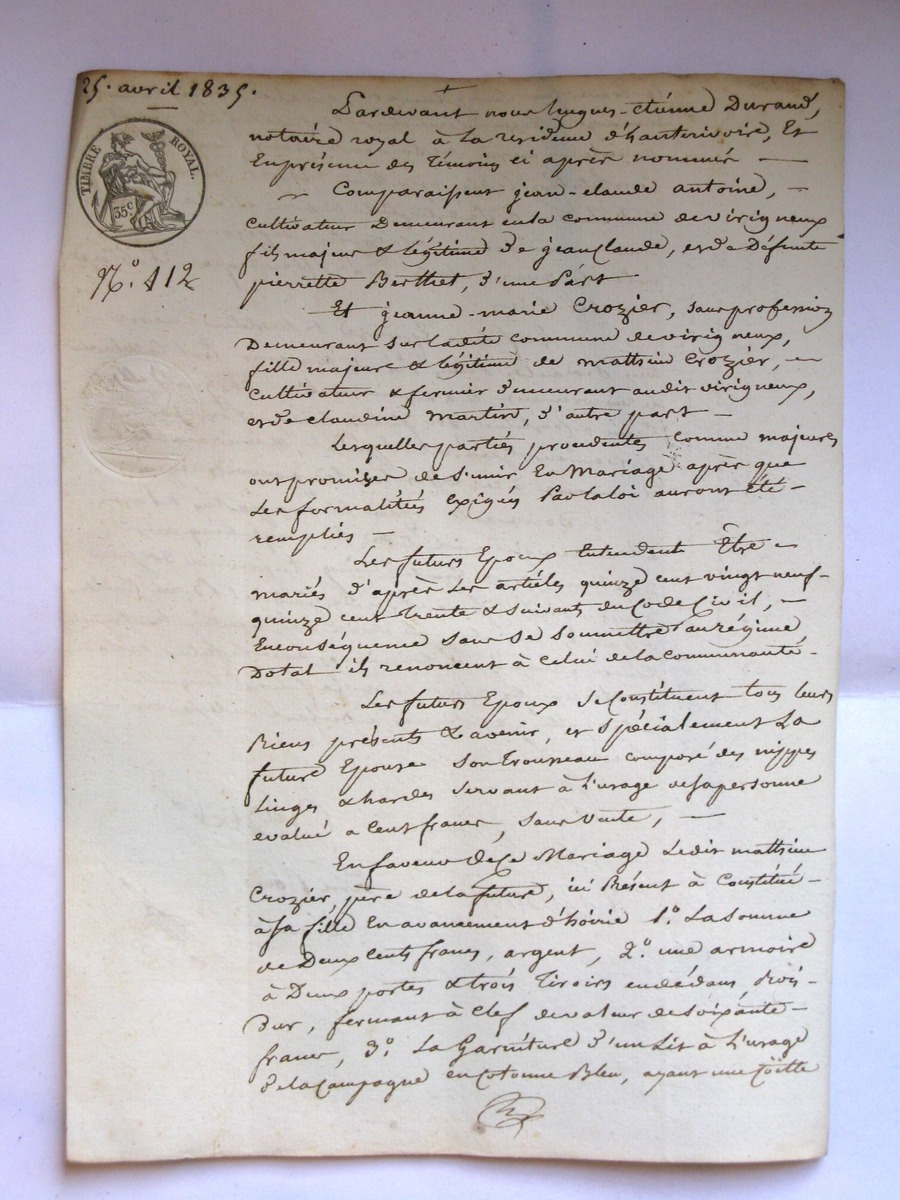 25. avril 1835.
TIMBRE ROYAL.
35c
N.o 112
Pardevant nous hugues-étienne Durand,
notaire royal à la residence d'hauterivoire, Et
En présence des témoins ci après nommés —
— Comparaissent jean-claude antoine, —
cultivateur Demeurant en la commune de virigneux
fils majeur & légitime de jean Claude, et de Défunte
pierrette Berthet, d'une Part
Et jeanne-marie Crozier, sans profession
Demeurant sur ladite commune de virigneux,
fille majeure & légitime de mathieu Crozier, —
Cultivateur & fermier demeurant audit virigneux,
et de claudine Martin, d'autre part —
Lesquelles parties procédentes comme majeures
ont promises de s'unir En Mariage après que
les formalités exigés Par la loi auront été —
remplies —
Les futurs Epoux Entendent Être —
mariés d'après les articles quinze cent vingt neuf-
quinze cent trente & suivants du Code Civil, —
En conséquence sans se soumettre au régime
Dotal ils renoncent à celui de la communauté.
Les futurs Epoux se Constituent tous leurs
Biens présents & avenir, et spécialement La
future Epouse son trousseau composé des nippes
Linges & hardes servant à l'usage de sa personne
evalué a Cent francs, sans vente, —
En faveur de Ce Mariage Ledit mathieu
Crozier, père de la future, ici Présent à Constitué —
à sa fille En avancement d'hoirie 1.o La somme
de Deux Cents francs, argent, 2.o une armoire
à Deux portes & trois Tiroirs en dédans, Bois-
dur, fermant à clef de valeur de soixante-
francs, 3.o La Garniture d'un Lit à l'usage
de la Campagne en Cotonne Bleu, ayant une Coëtte